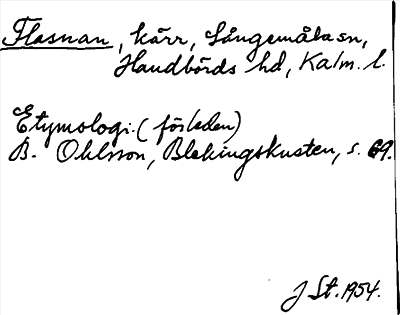 Flasnan, kärr, Långemåla sn,
Handbörds hd, Kalm. l.
Etymologi. (förleden)
B. Ohlsson, Blekingskusten, s. 69.
J St. 1954.